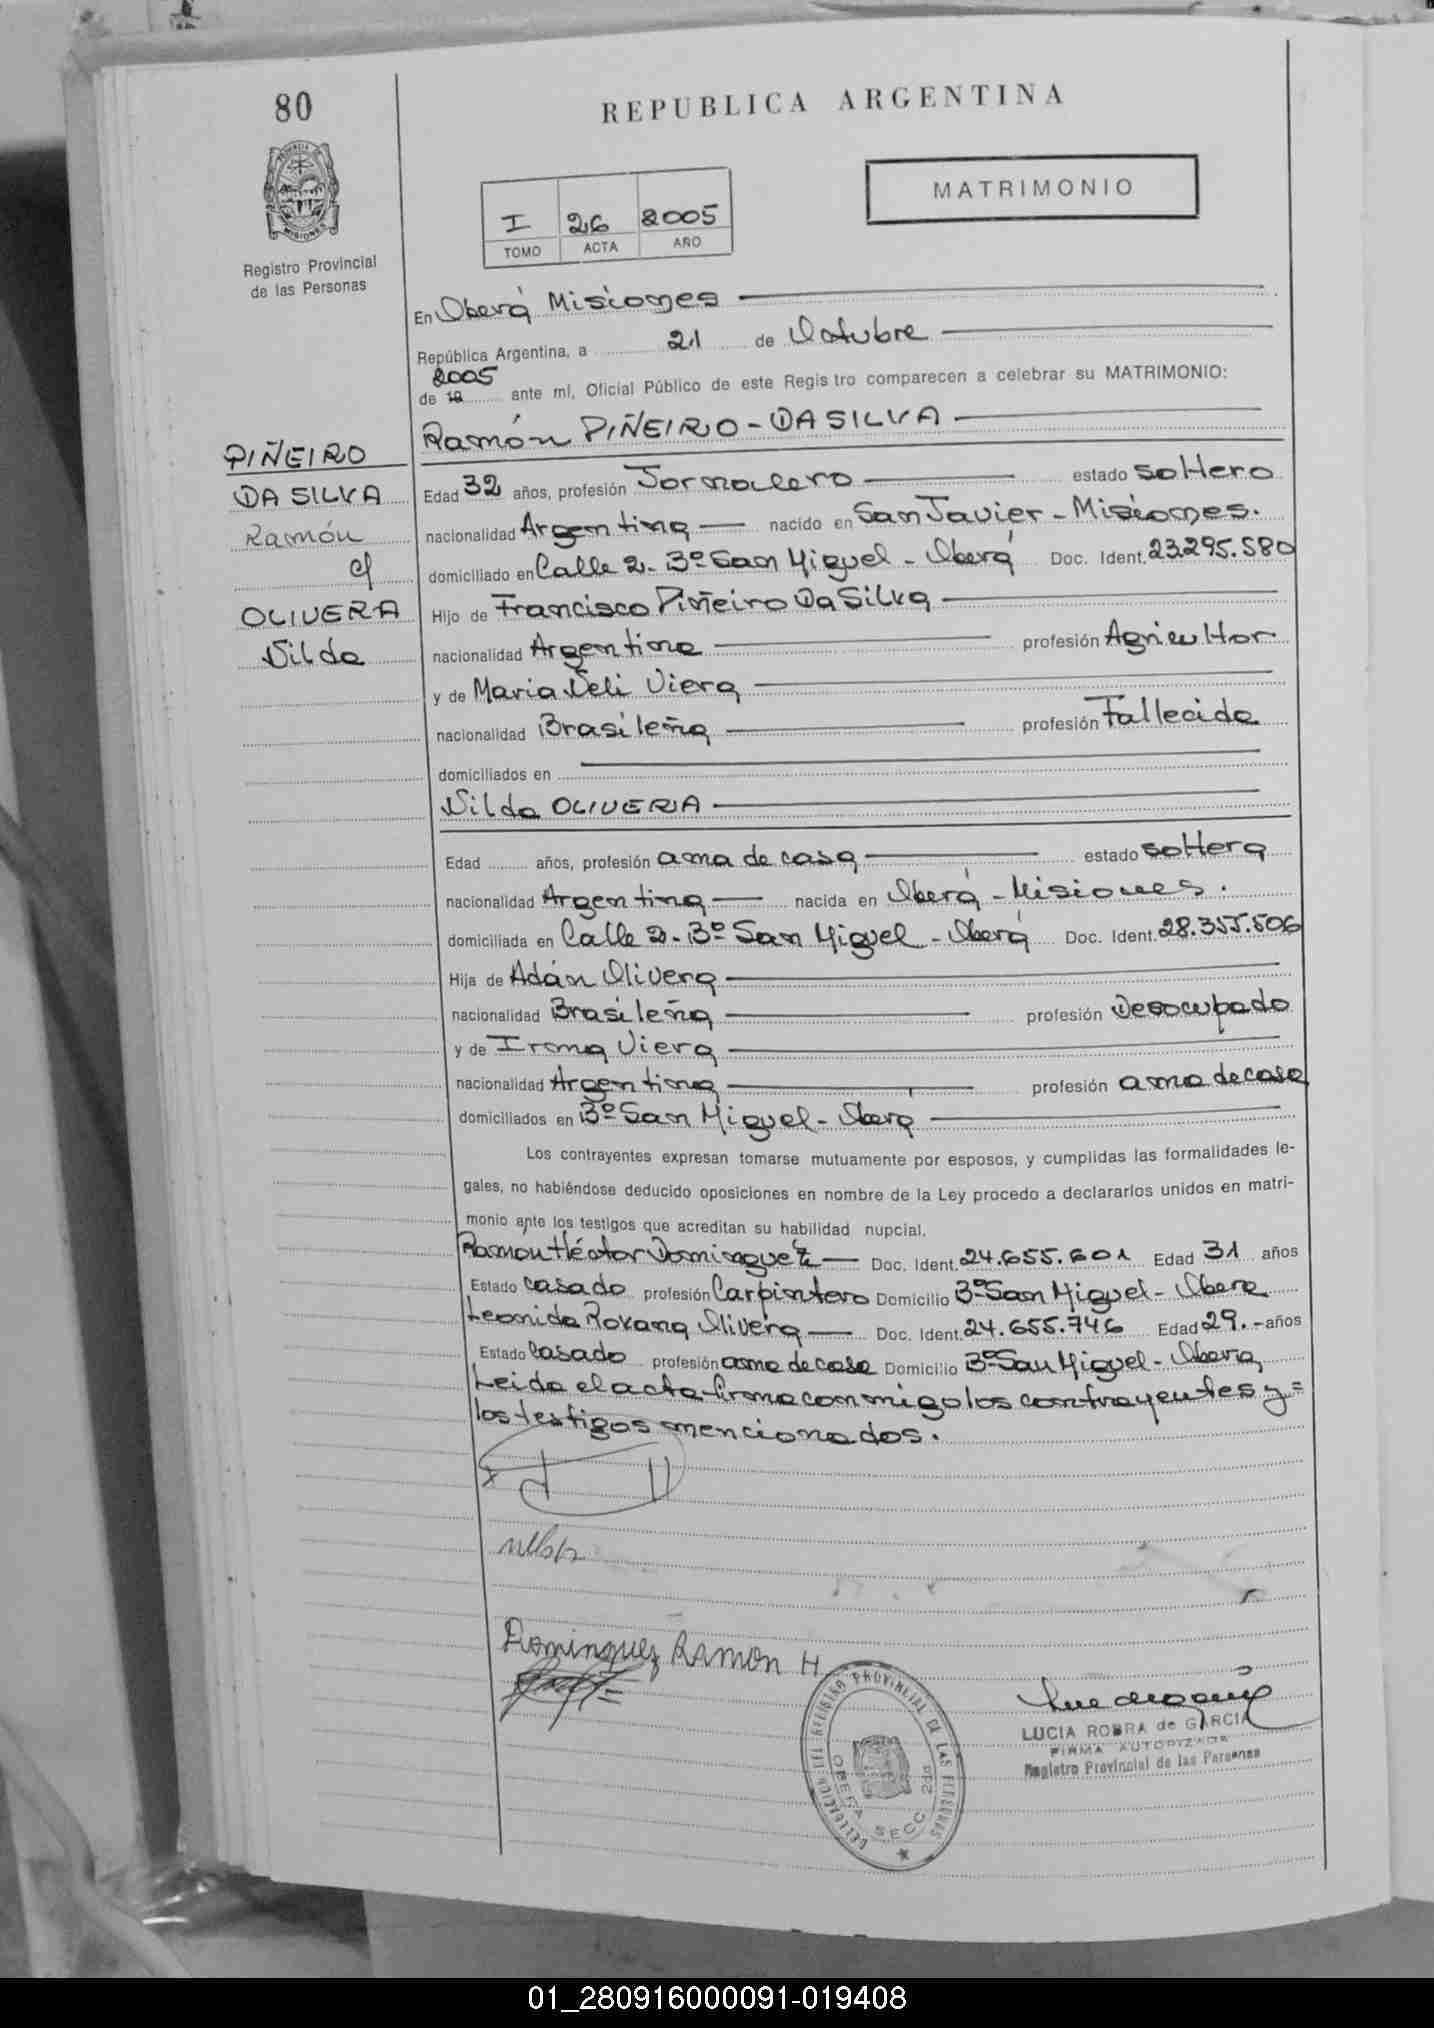 80
REPUBLICA ARGENTINA
MATRIMONIO
I 26 2005
TOMO ACTA AÑO
Registro Provincial
de las Personas
En Oberá Misiones
República Argentina, a 21 de Octubre
2005
de 19 ante mí, Oficial Público de este Regis tro comparecen a celebrar su MATRIMONIO:
Ramón PIÑEIRO-DA SILVA
PIÑEIRO
DA SILVA
Ramón
c/
OLIVERA
Nilda
Edad 32 años, profesión Jornalero estado soltero
nacionalidad Argentina nacido en San Javier - Misiones.
domiciliado en Calle 2- Bº San Miguel - Oberá Doc. Ident. 23.295.580
Hijo de Francisco Piñeiro Da Silva
nacionalidad Argentina profesión Agricultor
y de Maria Neli Viera
nacionalidad Brasileña profesión Fallecida
domiciliados en
Nilda OLIVERA
Edad años, profesión ama de casa estado soltera
nacionalidad Argentina nacida en Oberá - Misiones.
domiciliada en Calle 2- Bº San Miguel - Oberá Doc. Ident. 28.355.506
Hija de Adán Olivera
nacionalidad Brasileña profesión Desocupado
y de Irma Viera
nacionalidad Argentina profesión ama de casa
domiciliados en Bº San Miguel - Oberá
Los contrayentes expresan tomarse mutuamente por esposos, y cumplidas las formalidades le-
gales, no habiéndose deducido oposiciones en nombre de la Ley procedo a declararlos unidos en matri-
monio ante los testigos que acreditan su habilidad nupcial.
Ramón Héctor Dominguez Doc. Ident. 24.655.601 Edad 31 años
Estado casado profesión Carpintero Domicilio Bº San Miguel - Obera
Leonida Roxana Olivera Doc. Ident. 24.655.746 Edad 29.- años
Estado Casado profesión ama de casa Domicilio Bº San Miguel - Obera
Leida el acta firma conmigo los contrayentes y=
los testigos mencionados.
Dominguez Ramon H
DELEGACION DEL REGISTRO PROVINCIAL DE LAS PERSONAS
OBERA SECC 2da
LUCIA ROBRA de GARCIA
FIRMA AUTORIZADA
Registro Provincial de las Personas
01_280916000091-019408